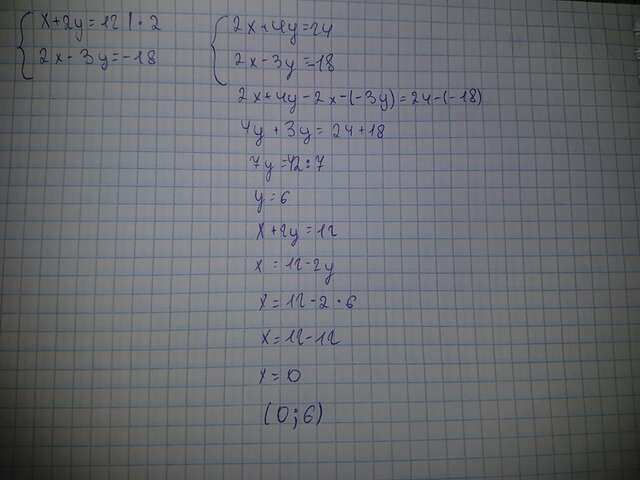 x+2y=12 | · 2
2x-3y=-18
2x+4y=24
2x-3y=-18
2x+4y-2x-(-3y)=24-(-18)
4y+3y=24+18
7y=42:7
y=6
x+2y=12
x=12-2y
x=12-2·6
x=12-12
x=0
(0;6)